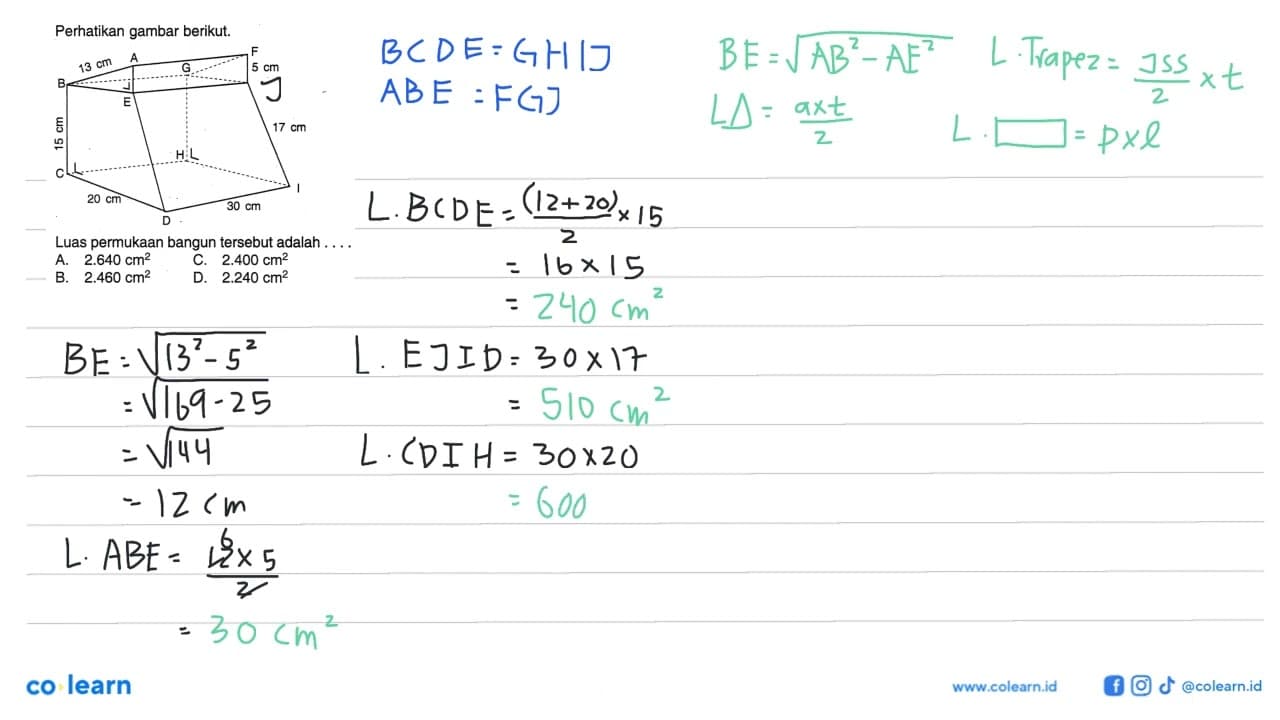 Perhatikan gambar berikut.
A
F
13 cm
G
5 cm
B
E
J
15 cm
17 cm
H
C
I
20 cm
30 cm
D
Luas permukaan bangun tersebut adalah . . . .
A. 2.640 cm² C. 2.400 cm²
B. 2.460 cm² D. 2.240 cm²
BCDE = GHIJ
ABE = FGJ
BE = √AB² - AE²
L∆ = axt/2
L. Trapez = JSS/2 x t
L. ▭ = p x l
L. BCDE = (12+20)/2 x 15
= 16 x 15
= 240 cm²
BE = √13² - 5²
= √169 - 25
= √144
= 12 cm
L. ABE = 12 6 x 5/2
= 30 cm²
L. EJID = 30 x 17
= 510 cm²
L. CDIH = 30 x 20
= 600
co learn
www.colearn.id
@colearn.id